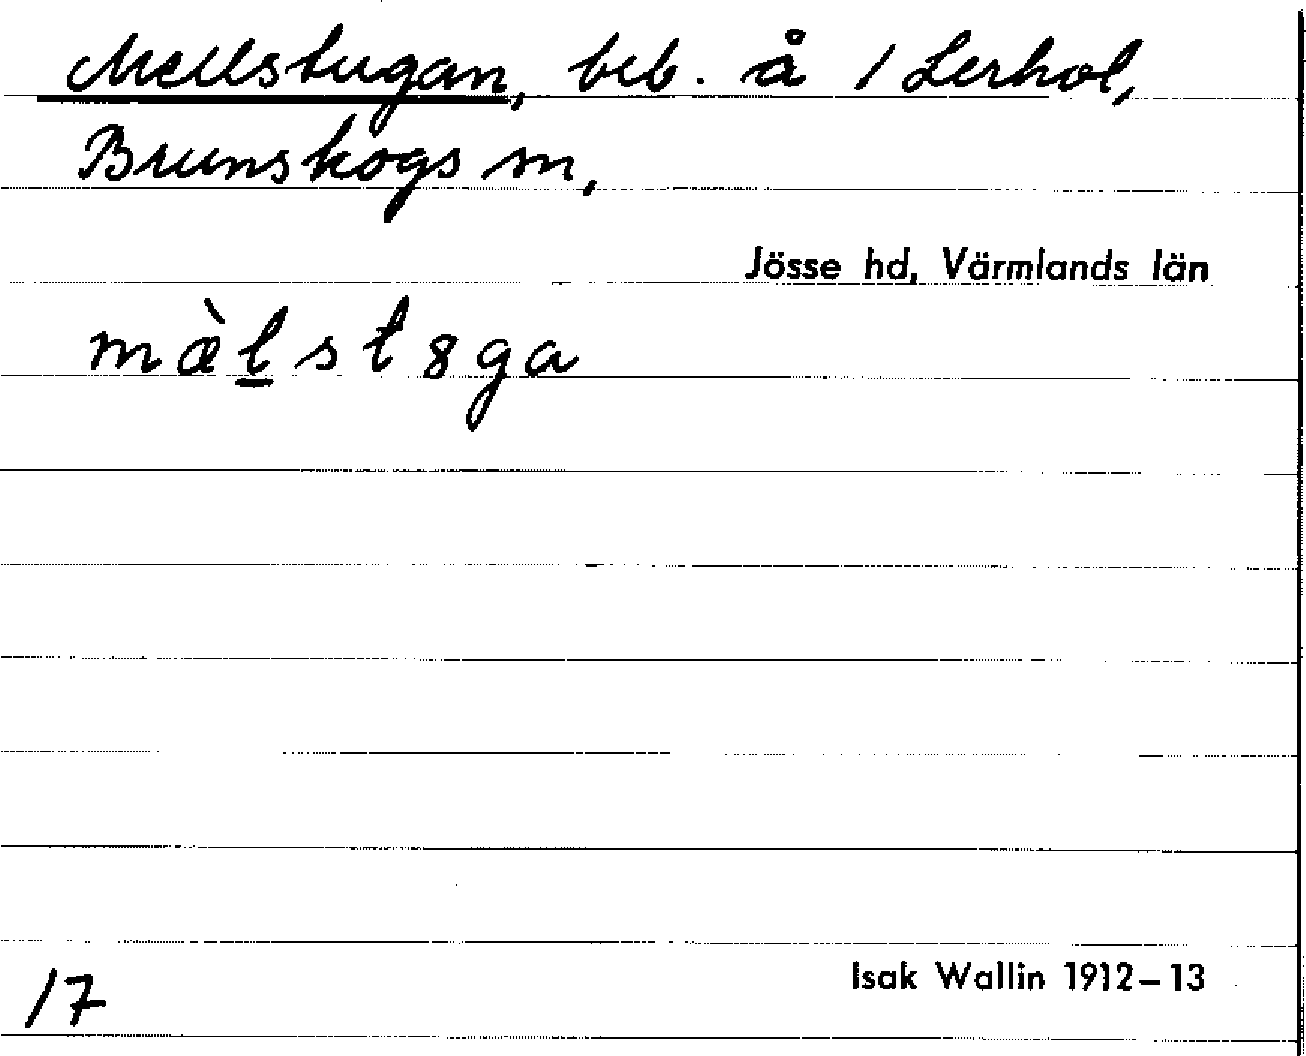 Mellstugan, beb. å 1 Lerhol,
Brunskogs sn,
Jösse hd, Värmlands län
mæ̀l̲st8ga
Isak Wallin 1912–13
17